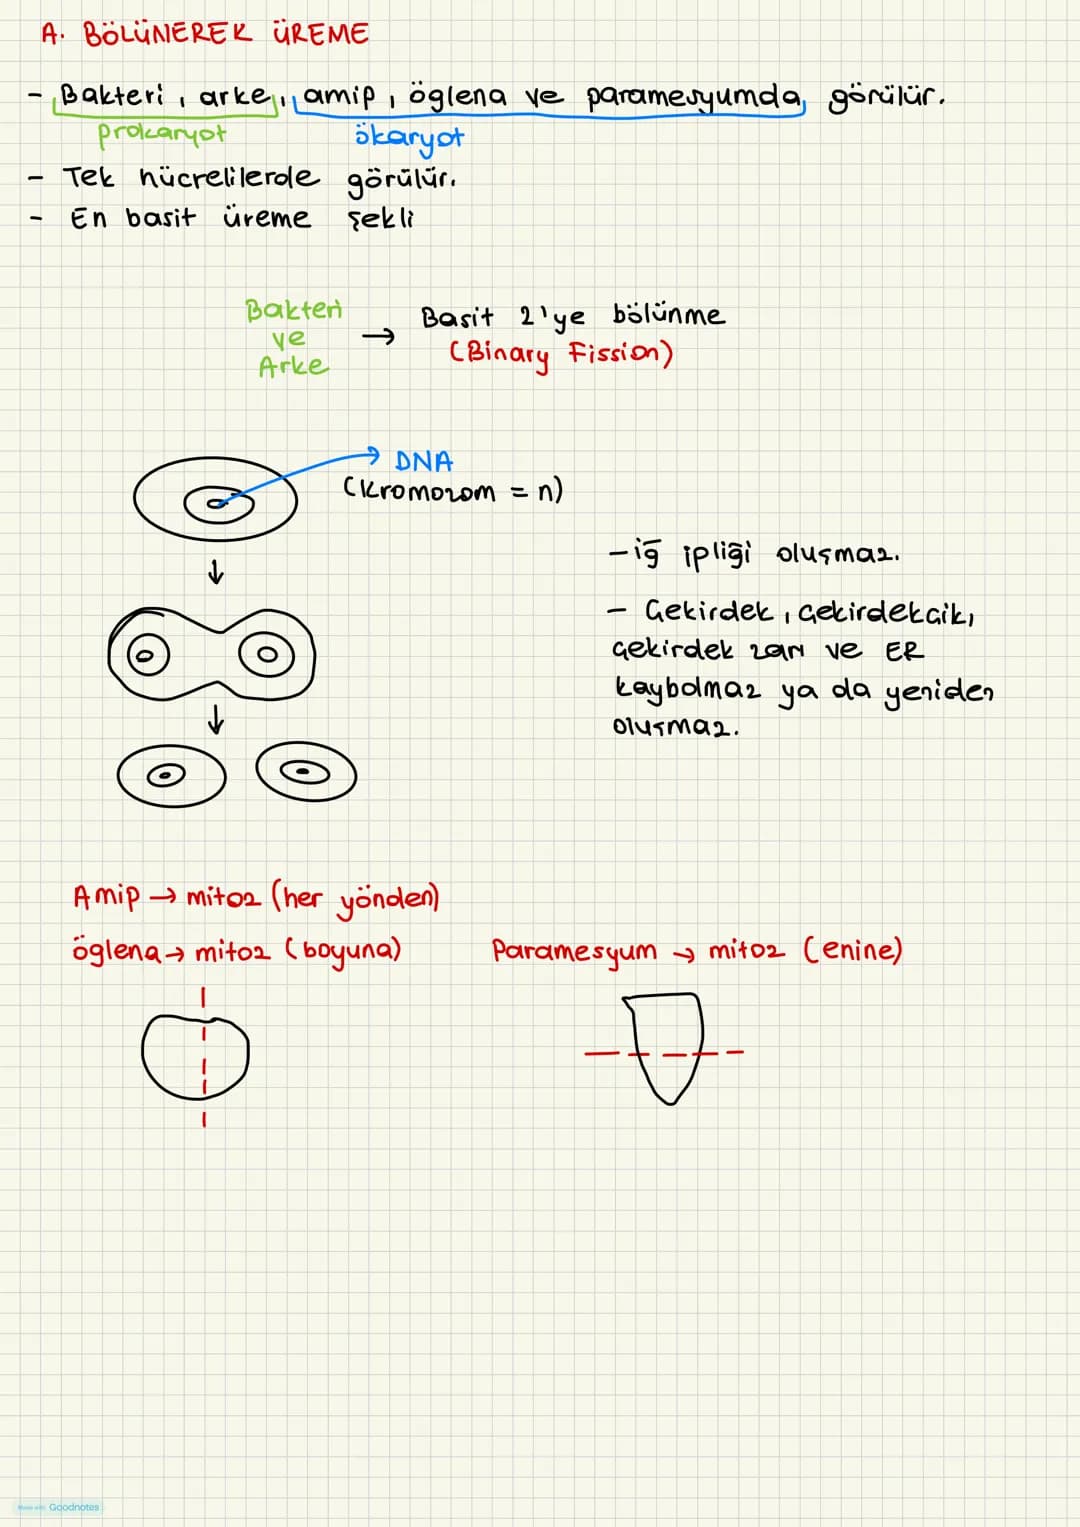 A. BÖLÜNEREK ÜREME
- Bakteri, arke, amip, öglena ve paramesyumda görülür.
prokaryot ökaryot
- Tek hücrelilerde görülür.
- En basit üreme şekli
Bakteri
ve
Arke
→ Basit 2'ye bölünme
(Binary Fission)
DNA
(Kromozom = n)
- iğ ipliği oluşmaz.
- Çekirdek, çekirdekçik,
çekirdek zarı ve ER
kaybolmaz ya da yeniden
oluşmaz.
Amip → mitoz (her yönden)
öglena → mitoz (boyuna)
Paramesyum → mitoz (enine)
Made with Goodnotes